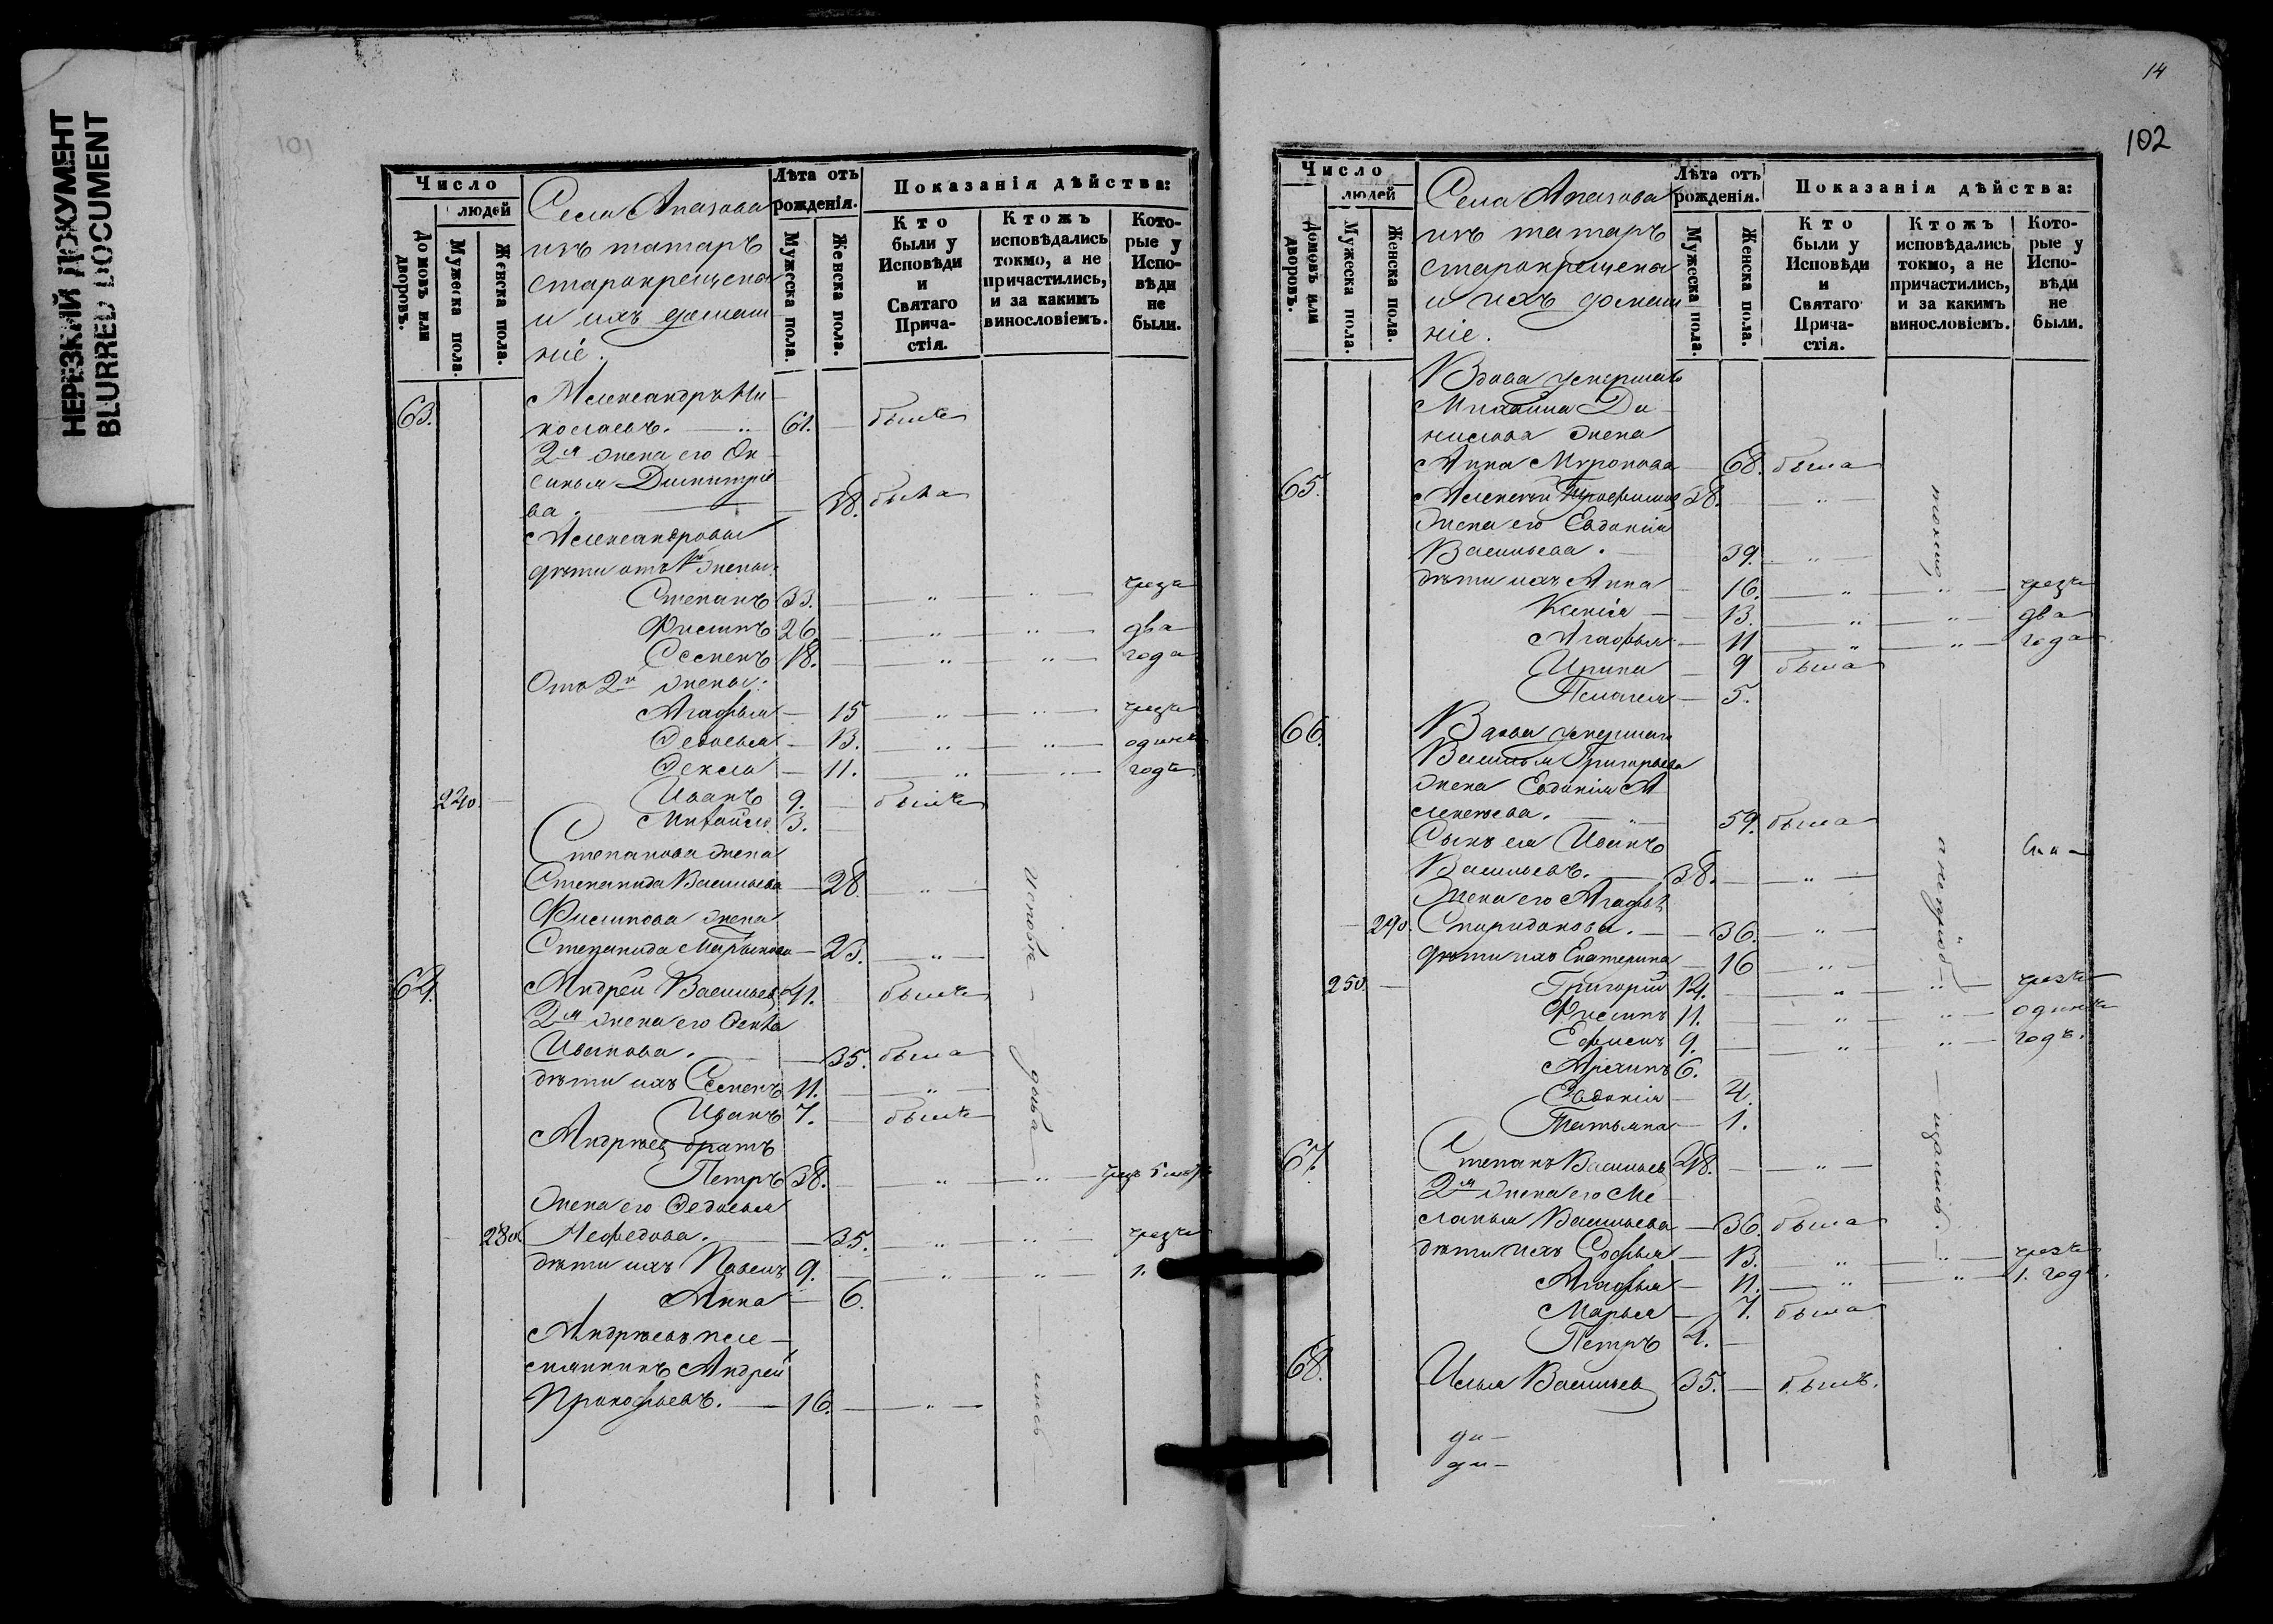 НЕРЕЗКИЙ ДОКУМЕНТ
BLURRED DOCUMENT
101
Число
людей
Домовъ или дворовъ.
Мужеска пола.
Женска пола.
Села Апазова
изъ татаръ
старокрещена
и ихъ домаш
ніе.
Лѣта отъ рожденія.
Мужеска пола.
Женска пола.
Показанія дѣйства:
Кто были у Исповѣди и Святаго Прича-стія.
Ктожъ исповѣдались токмо, а не причастились, и за какимъ винословіемъ.
Кото-рые у Испо-вѣди не были.
63. Александръ Ни
колаевъ. — 61. — былъ
2я жена его Ак
синья Димитріе
ва. — 38. была
Александровы
дѣти отъ 1й жены:
Степанъ 33. — " — " — чрезъ
Филипъ 26 — " — " — два
Семенъ 18. — " — " — года
Отъ 2й жены:
Агафья — 15 — " — " — чрезъ
Федосья — 13. — " — " — одинъ
Фекла — 11. — " — " — годъ
220. — Иванъ 9. — былъ
Михаилъ 3.
Степанова жена
Степанида Васильева — 28. — " —
Филипова жена
Степанида Мартынова — 23. — " —
64. Андрей Васильев 41. — былъ
2я жена его Фекла
Иванова. — 35. была
дѣти ихъ Семенъ 11. — " —
Иванъ 7. — былъ
Андрѣев братъ
Петръ 38. — " — " — чрезъ
жена его Федосья
230. Нефедова. — 35. — " — " — чрезъ
дѣти ихъ Павелъ 9. — " — " — 1.
Анна — 6.
Андрѣевъ пле—
мянникъ Андрей
Прокофьевъ. — 16. — " —
исповѣ — дыва — лись
14
102
Число
людей
Домовъ или дворовъ.
Мужеска пола.
Женска пола.
Села Апазова
изъ татаръ
старокрещена
и ихъ домаш
ніе.
Лѣта отъ рожденія.
Мужеска пола.
Женска пола.
Показанія дѣйства:
Кто были у Исповѣди и Святаго Прича-стія.
Ктожъ исповѣдались токмо, а не причастились, и за какимъ винословіемъ.
Кото-рые у Испо-вѣди не были.
Вдова умершаго
Михаила Да—
нилова жена
Анна Миронова — 68. была
65. Алексѣй Трофимов 38. — " —
жена его Евдокія
Васильева. — 39. — " —
дѣти ихъ Анна — 16. — " — " — чрезъ
Ксенія — 13. — " — " — два
Агафья — 11 — " — " — года
Ирина — 9 была
Пелагея — 5.
66. Вдова умершаго
Василья Григорьева
жена Евдокія А
лексѣева. — 59. была
Сынъ ея Иванъ
Васильевъ. — 38. — " —
жена его Агафья
290. Спиридонова. — 36. — " —
дѣти ихъ Екатерина — 16 — " —
250. — Григорій 14. — " — " — чрезъ
Филипъ 11. — " — " — одинъ
Ефимъ 9. — " — " — годъ.
Архипъ 6.
Евдокія — 4.
Татьяна — 1.
67. Степанъ Васильев 48. — " —
2я жена его Ме
ланья Васильева — 36. была
дѣти ихъ Софья — 13. — " — " — чрезъ
Агафья — 11. — " — " — 1. годъ.
Марья — 7. была
Петръ 4. —
68. Илья Васильев 35. — былъ.
токмо — а непріоб — щались.